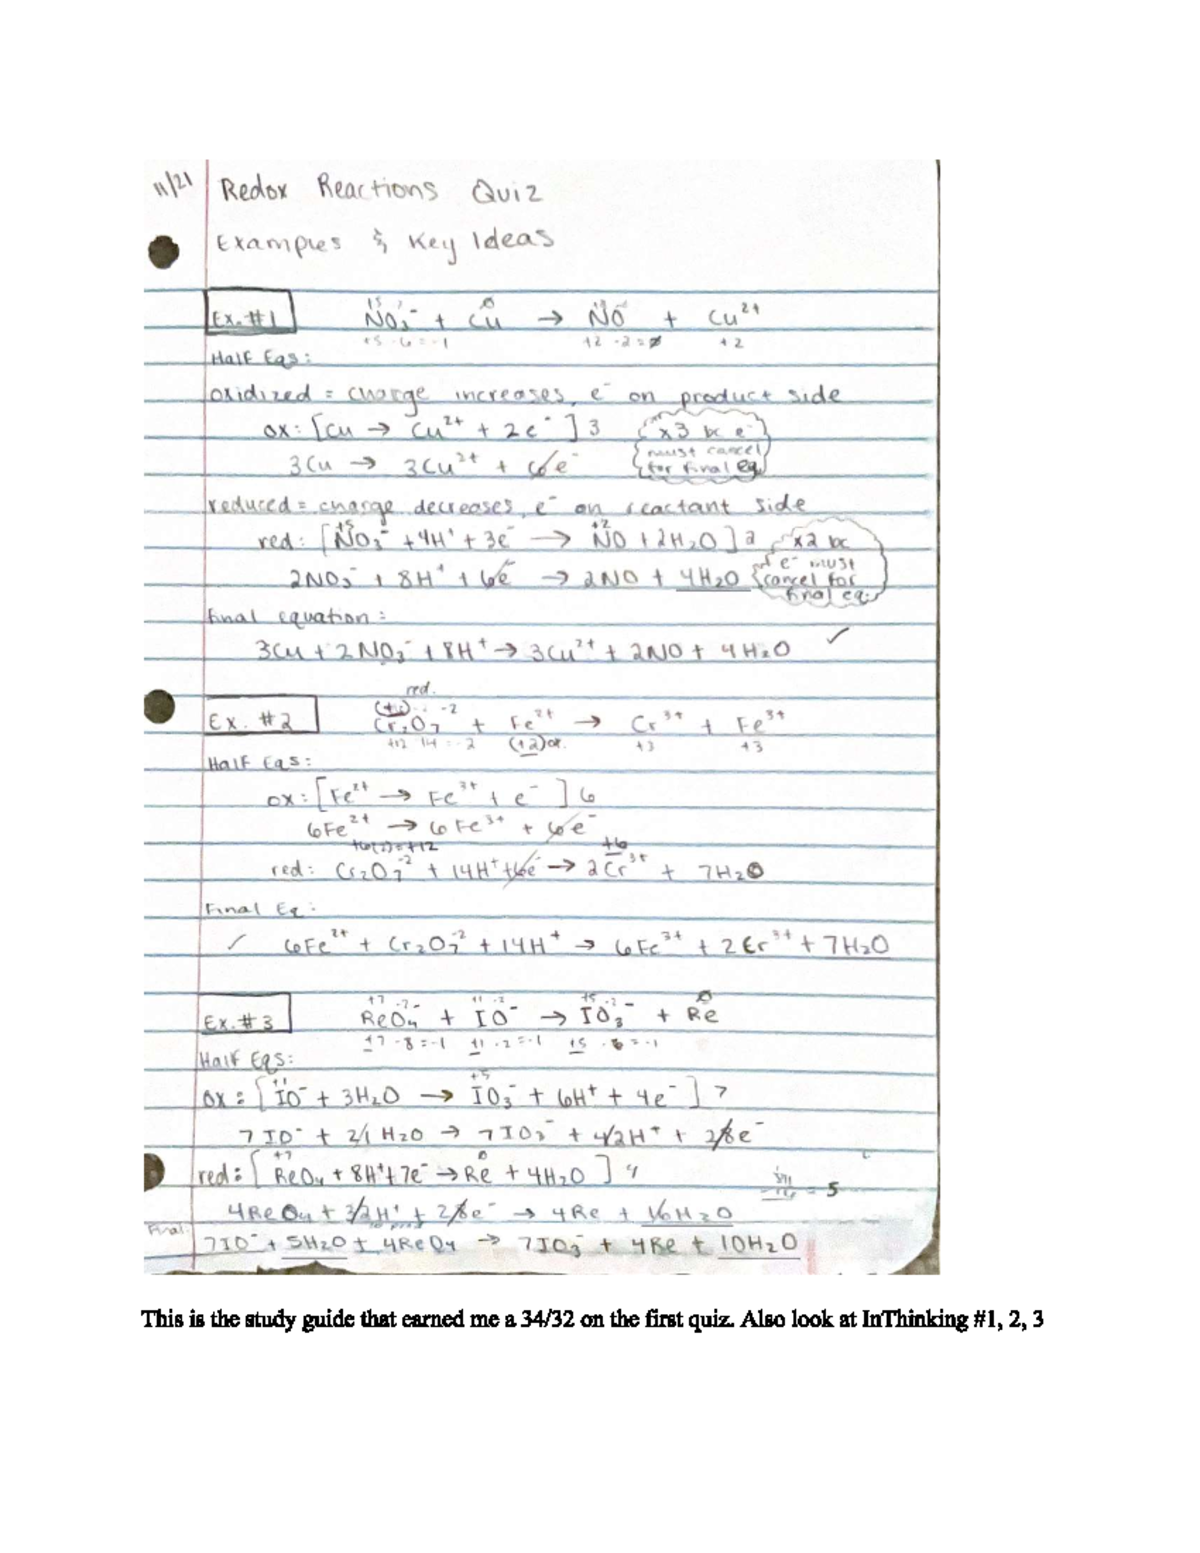 11/21 Redox Reactions Quiz
Examples & Key Ideas
Ex. #1 NO₃⁻ + Cu → NO + Cu²⁺
+5 -6 = -1 +2 -2 = 0 +2
Half Eqs:
oxidized = charge increases, e⁻ on product side
ox: [Cu → Cu²⁺ + 2e⁻] 3 x3 bc e⁻
must cancel
3Cu → 3Cu²⁺ + 6e⁻ for final eq
reduced = charge decreases, e⁻ on reactant side
+5 +2
red: [NO₃⁻ + 4H⁺ + 3e⁻ → NO + 2H₂O] 2 x2 bc
e⁻ must
2NO₃⁻ + 8H⁺ + 6e⁻ → 2NO + 4H₂O cancel for
final eq.
Final equation:
3Cu + 2NO₃⁻ + 8H⁺ → 3Cu²⁺ + 2NO + 4H₂O ✓
red.
-2
Ex. #2 Cr₂O₇ + Fe²⁺ → Cr³⁺ + Fe³⁺
+12 -14 = -2 (+2)ox. +3 +3
Half Eqs:
ox: [Fe²⁺ → Fe³⁺ + e⁻] 6
6Fe²⁺ → 6Fe³⁺ + 6e⁻
+6(2)=+12 +6
red: Cr₂O₇⁻² + 14H⁺ + 6e⁻ → 2Cr³⁺ + 7H₂O
Final Eq:
✓ 6Fe²⁺ + Cr₂O₇⁻² + 14H⁺ → 6Fe³⁺ + 2Cr³⁺ + 7H₂O
+7 -2 +1 -2 +5 -2 0
Ex. #3 ReO₄⁻ + IO⁻ → IO₃⁻ + Re
+7 -8 = -1 +1 -2 = -1 +5 -6 = -1
Half Eqs:
+1 +5
ox: [IO⁻ + 3H₂O → IO₃⁻ + 6H⁺ + 4e⁻] 7
7IO⁻ + 21H₂O → 7IO₃⁻ + 42H⁺ + 28e⁻
+7 0
red: [ReO₄ + 8H⁺ + 7e⁻ → Re + 4H₂O] 4
= 5
4ReO₄ + 32H⁺ + 28e⁻ → 4Re + 16H₂O
Final:
7IO⁻ + 5H₂O + 4ReO₄ → 7IO₃⁻ + 4Re + 10H₂O
This is the study guide that earned me a 34/32 on the first quiz. Also look at InThinking #1, 2, 3